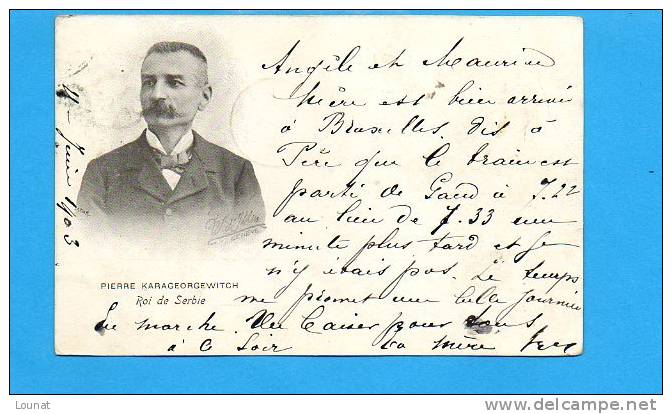 Angèle et Maurice
Mère est bien arrivée
à Bruxelles. dis à
Père que le train est
parti de Gand à 7.22
au lieu de 7.33 une
minute plus tard et je
n'y étais pas. Le temps
me promet une belle journée
En marche. Un baiser pour tous
à ce soir
ta mère
4 - Juin 1903
GENÈVE
PIERRE KARAGEORGEWITCH
Roi de Serbie
Lounat
www.delcampe.net